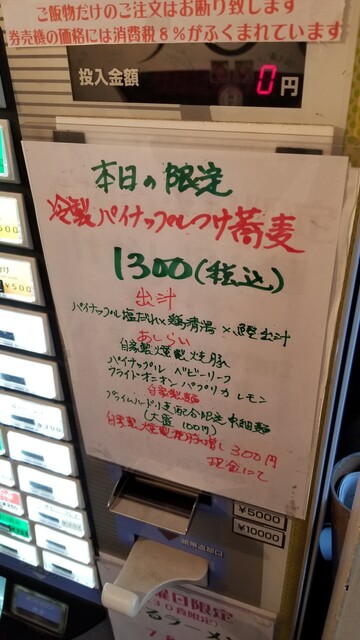 ご飯物だけのご注文はお断り致します
券売機の価格には消費税8%がふくまれています
投入金額 0円
本日の限定
冷製パイナップルつけ蕎麦
1300(税込)
出汁
パイナップル塩だれ×鶏清湯×鰹出汁
あしらい
自家製燻製焼豚
パイナップル ベビーリーフ
フライドオニオン パプリカ レモン
自家製麺
プライムハード小麦配合限定中細麺
(大盛 100円)
自家製燻製焼豚増し300円
現金にて
¥5000
¥10000
曜日限定